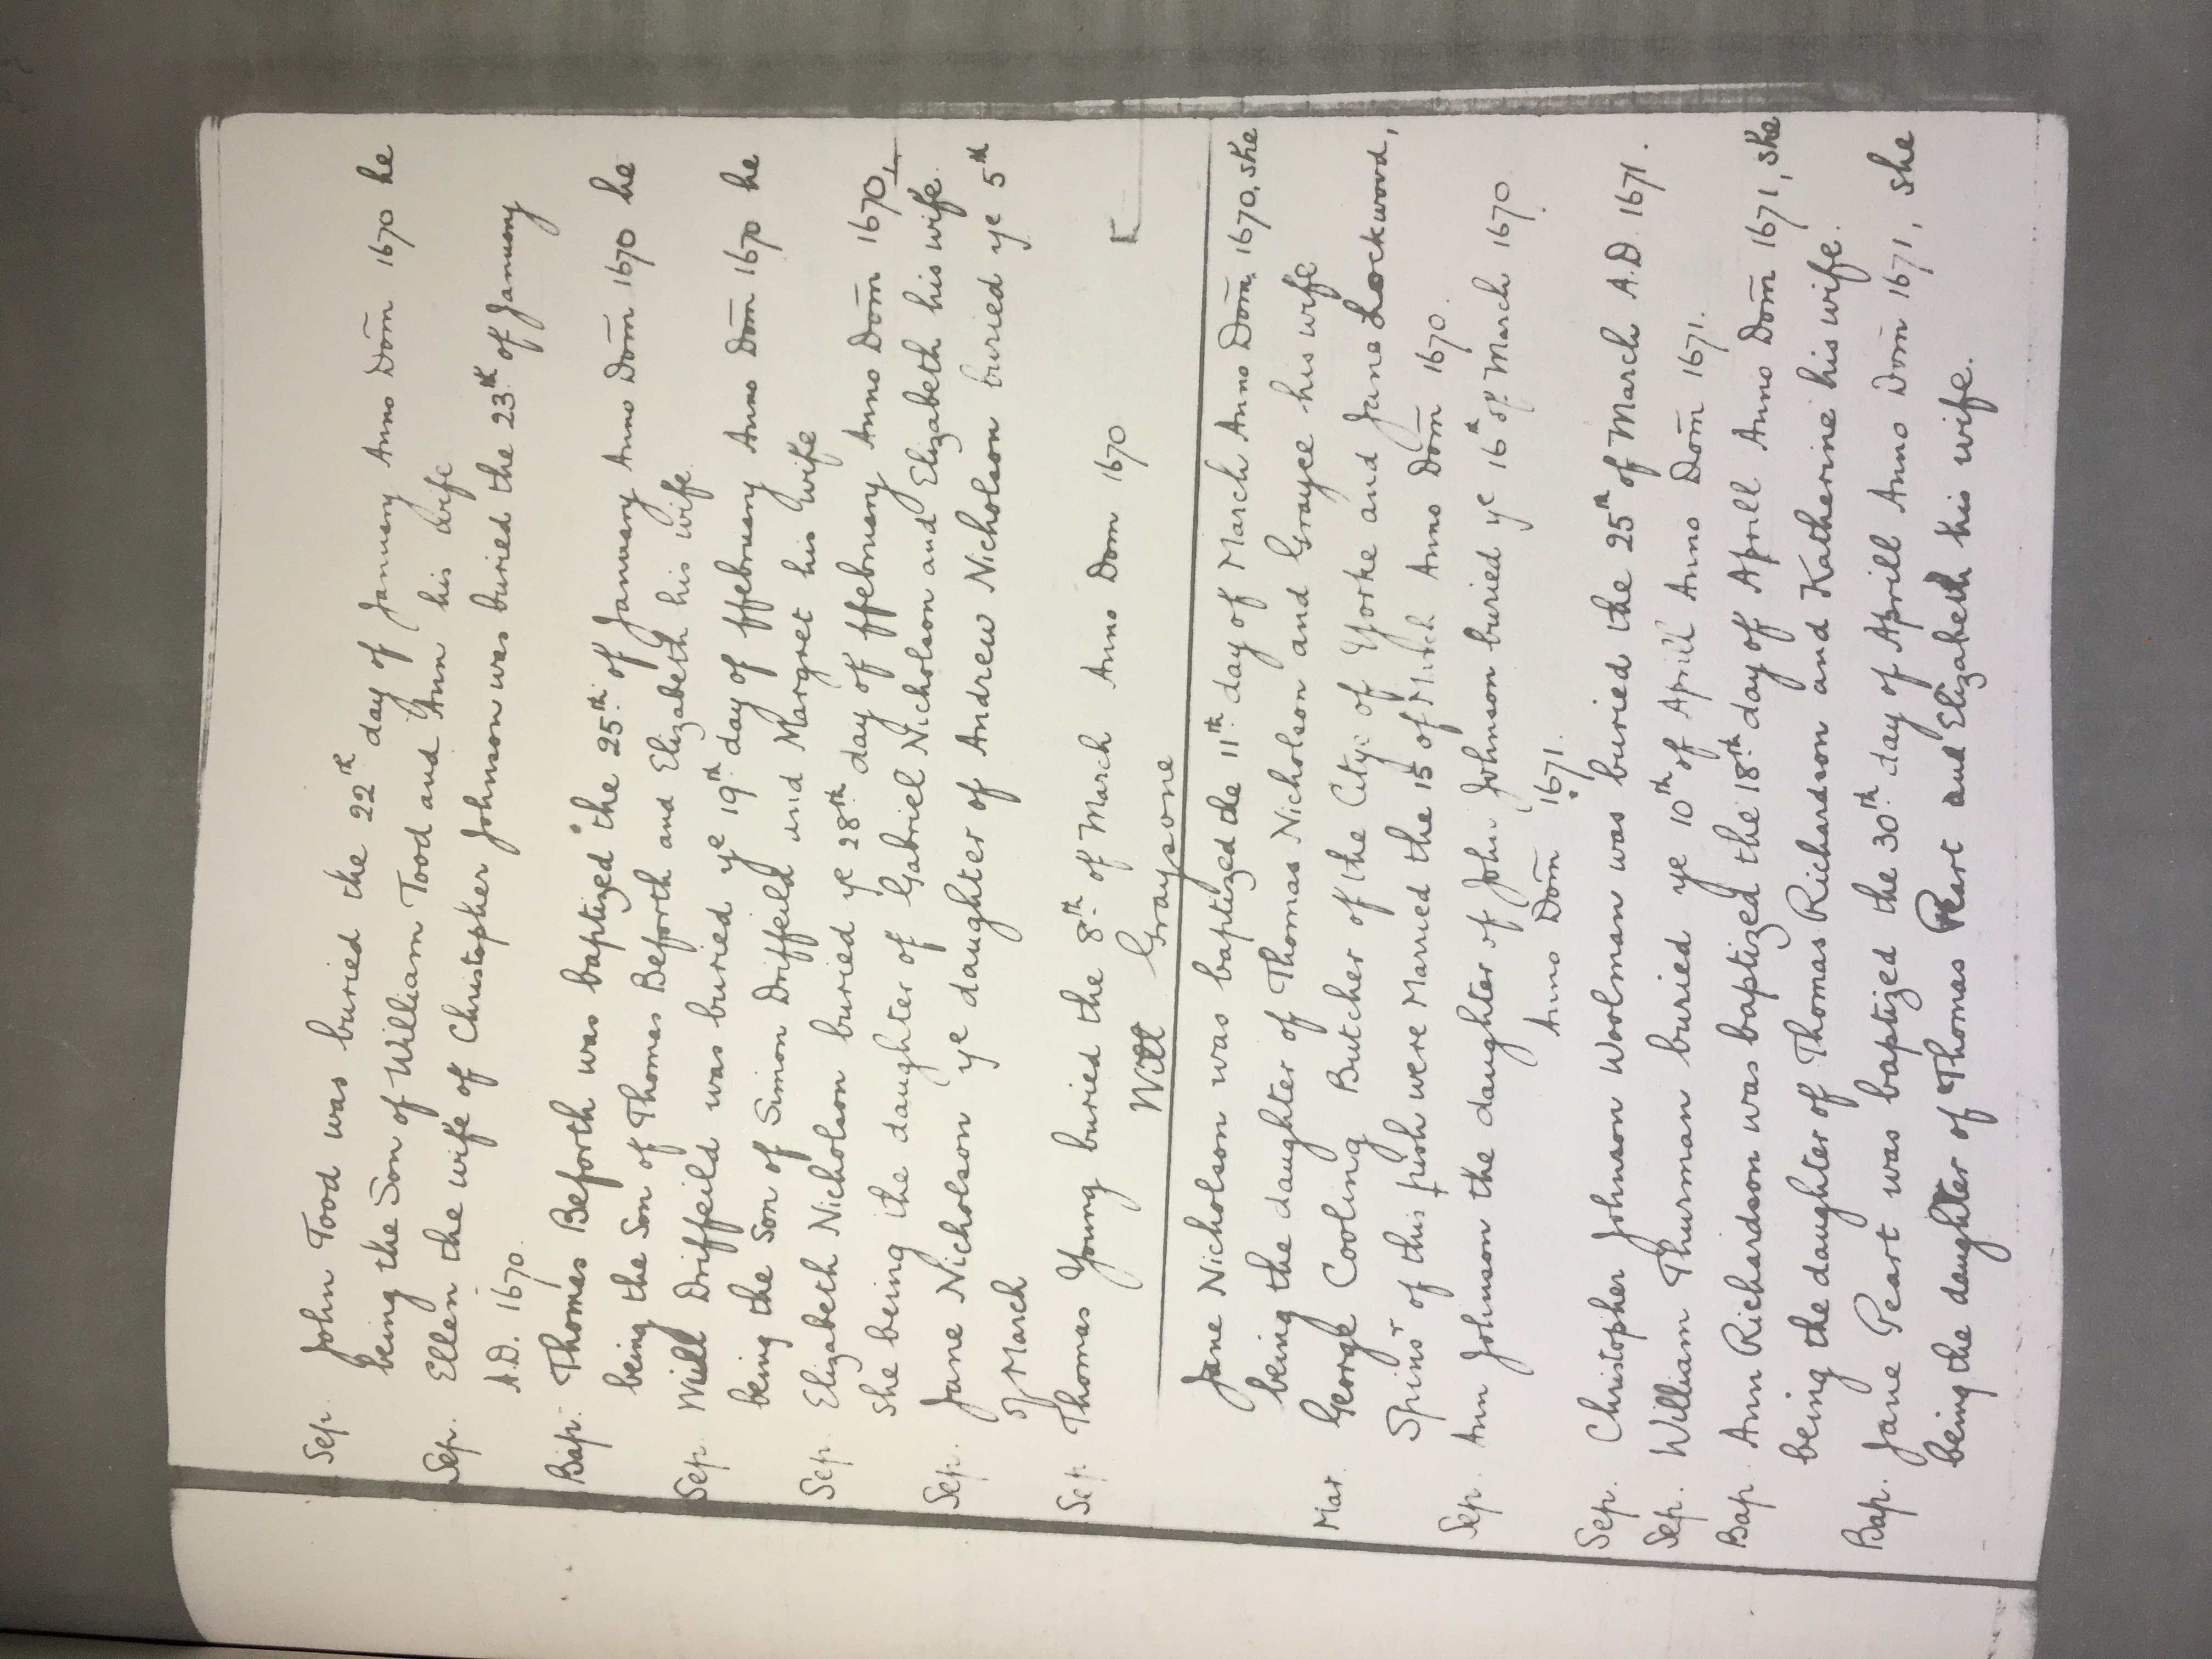 Sep. John Tood was buried the 22th day of January Anno Dom̄ 1670 he
being the Son of William Tood and Ann his wife
Sep. Ellen the wife of Christopher Johnson was buried the 23th of January
A.D. 1670.
Bap. Thomas Beforth was baptized the 25th of January Anno Dom̄ 1670 he
being the Son of Thomas Beforth and Elizabeth his wife
Sep. Will Driffeild was buried ye 19th day of ffebruary Anno Dom̄ 1670 he
being the Son of Simon Driffeild and Margret his wife
Sep. Elizabeth Nicholson buried ye 28th day of ffebruary Anno Dom̄ 1670
She being the daughter of Gabriel Nicholson and Elizabeth his wife.
Sep. Jane Nicholson ye daughter of Andrew Nicholson buried ye 5th
of March
Sep. Thomas Young buried the 8th of March Anno Dom 1670
Will Graysone
Jane Nicholson was baptized the 11th day of March Anno Dom̄. 1670, she
being the daughter of Thomas Nicholson and Grayce his wife
Mar. George Cooling Butcher of the Citye of Yorke and Jane Lockwood,
Spinsr of this prish were Married the 15 of March Anno Dom̄ 1670.
Sep. Ann Johnson the daughter of John Johnson buried ye 16th of March 1670.
Anno Dom̄ 1671.
Sep. Christopher Johnson Woolman was buried the 25th of March A.D. 1671.
Sep. William Thurman buried ye 10th of Aprill Anno Dom̄ 1671.
Bap. Ann Richardson was baptized the 18th day of Aprill Anno Dom̄ 1671, she
being the daughter of Thomas Richardson and Katherine his wife.
Bap. Jane Peart was baptized the 30th day of Aprill Anno Dom̄ 1671, she
being the daughter of Thomas Peart and Elizabeth his wife.